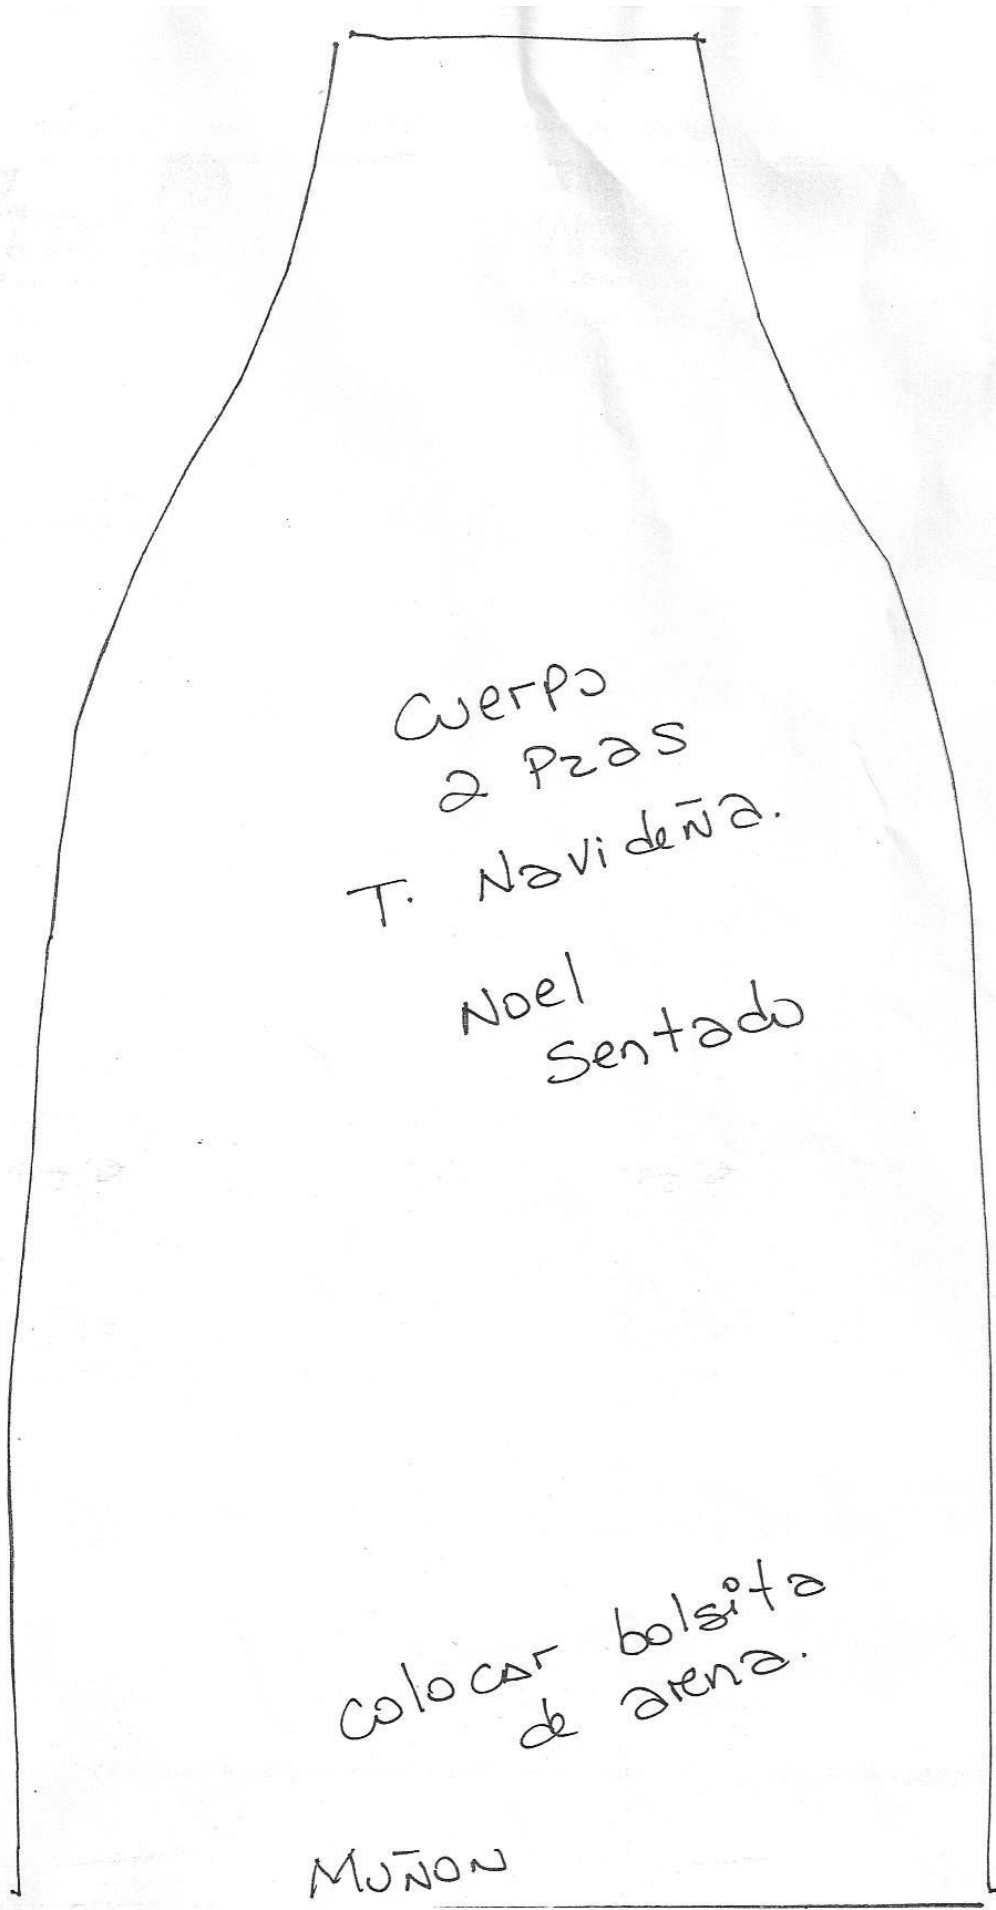 Cuerpo
2 Pzas
T. Navideña.
Noel
Sentado
colocar bolsita
de arena.
MUÑON